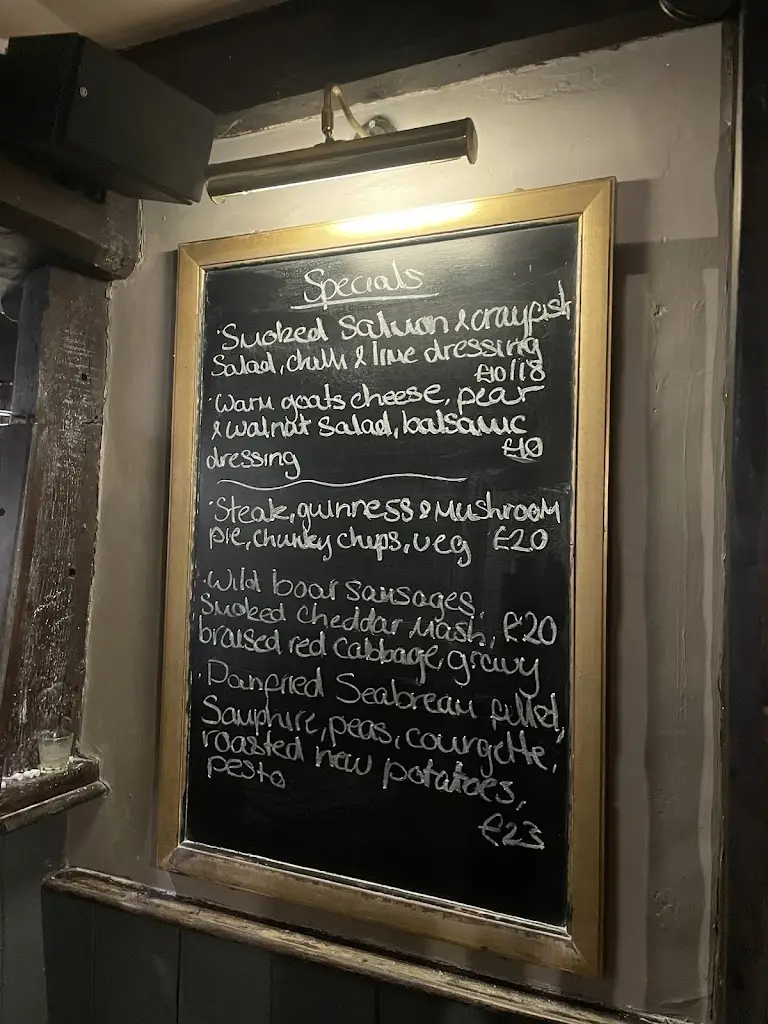 Specials
·Smoked Salmon & crayfish
Salad, chilli & lime dressing
£10/18
·Warm goats cheese, pear
& walnut salad, balsamic
dressing £10
·Steak, guinness & Mushroom
pie, chunky chips, veg £20
·Wild boar sausages,
Smoked cheddar mash, £20
braised red cabbage, gravy
·Panfried Seabream fillet,
Samphire, peas, courgette,
roasted new potatoes,
pesto
£23